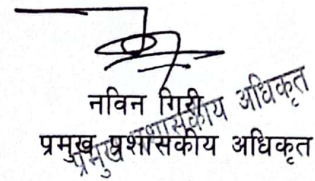 नविन गिरी
प्रमुख प्रशासकीय अधिकृत
प्रमुख प्रशासकीय अधिकृत